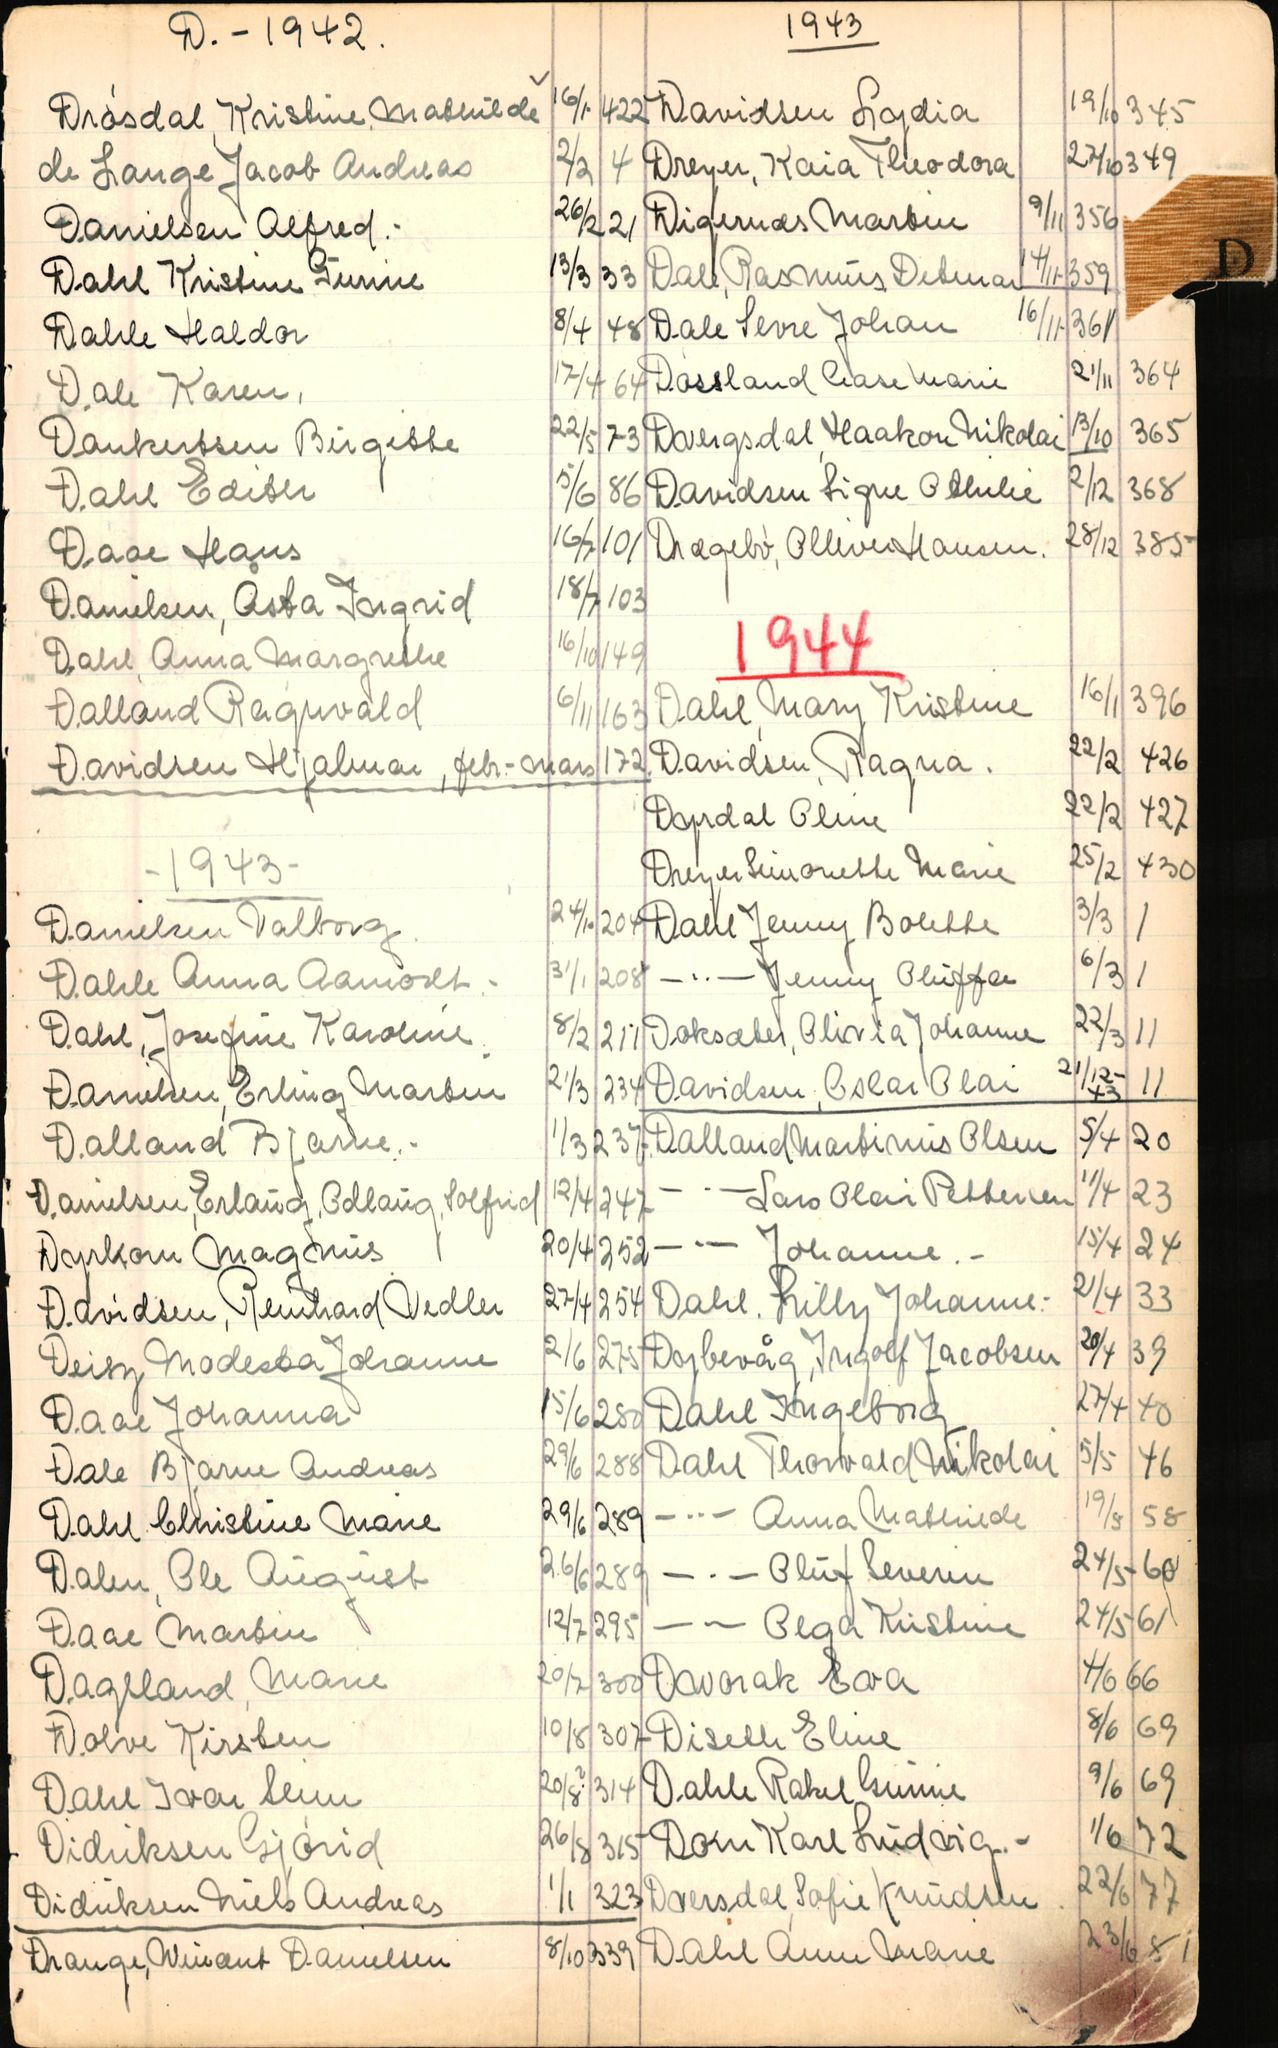 D. - 1942.
Drøsdal, Kristine Mathilde 16/1 422
de Lange Jacob Andreas 2/2 4
Danielsen Alfred.- 26/2 21
Dahl Kristine Gurine 13/3 33
Dahle Haldor 8/4 48
Dale Karen, 17/4 64
Dankertsen Birgitte 22/5 73
Dahl Edith 5/6 86
Daae Hans 16/7 101
Danielsen, Asta Ingrid 18/7 103
Dahl, Anna Margrethe 16/10 149
Dalland Ragnvald 6/11 163
Davidsen Hjalmar, febr.-mars 172
-1943-
Danielsen Valborg. 204
Dahle Anna Aamodt.- 31/1 208
Dahl, Josefine Karoline. 8/2 211
Danielsen, Erling Martin 21/3 234
Dalland Bjarne.- 1/3 237
Danielsen, Erlaug, Odlaug, Solfrid 12/4 247
Dyrkorn Magnus 20/4 252
Davidsen, Reinhard Vedler 27/4 254
Deisz Modesta Johanne 2/6 275
Daae Johanna 15/6 280
Dale Bjarne Andreas 29/6 288
Dahl Christine Marie 29/6 289
Dalen, Ole August 26/6 289
Daae Martin 12/7 295
Dagsland, Marie 20/7 300
Dolve Kirsten 10/8 307
Dahl Ivar Seim 20/8? 314
Didriksen Gjørid 26/8 315
Didriksen Niels Andreas 1/1 323
Drange, Danielsen 8/10 339
1943
Davidsen Lydia 19/10 345
Dreyer, Kaia Theodora 27/10 349
Digernæs Martin 9/11 356
Dale, Rasmus, Detmar 14/11- 359
Dale Sevre Johan 16/11- 361
Døssland Aase Marie 21/11 364
Dvergsdal, Haakon Nikolai 13/10 365
Davidsen Signe Othilie 2/12 368
Dragebø, Olliver Hansen. 28/12 385
D
1944
Dahl, Mary Kristine 16/1 396
Davidsen, Ragna. 22/2 426
Døjrdal Oline 22/2 427
Dreyer Simonette Marie 25/2 430
Dahl Jenny Bolette 3/3 1
— .. — Jenny Oluffa 6/3 1
Doksæter, Olivia Johanne 22/3 11
Davidsen, Oskar Olai 21/12-43 11
Dalland Martinius Olsen 5/4 20
— - — Lars Olai Pettersen 11/4 23
— - — Johanne.- 15/4 24
Dahl. Lilly Johanne.- 21/4 33
Dojbevåg, Ingolf Jacobsen 20/4 39
Dahl Ingeborg 27/4 40
Dahl Thorvald Nikolai 5/5 46
— .. — Anna Mathilde 19/5 58
— . — Oluf Severin 24/5- 60
— - — Olga Kristine 24/5- 61
Davorak Eva 4/6 66
Diseth Eline 8/6 69
Dahle Rakel Gunnie 9/6 69
Dorn Karl Ludvig.- 1/6 72
Dversdal, Sofie Knudsen. 22/6 77
Dahl Anne Marie 23/6 81